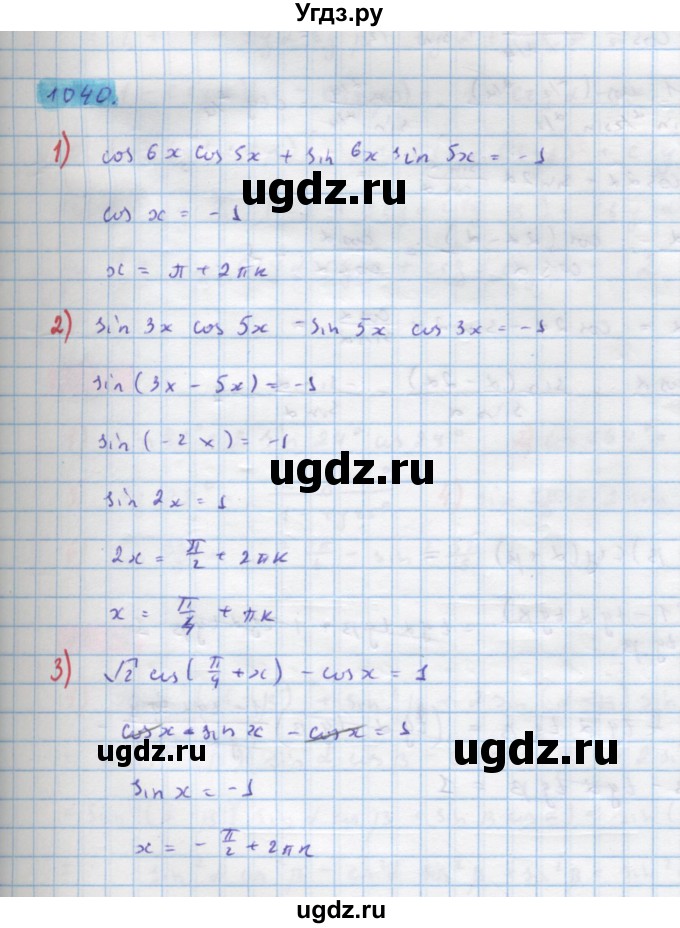 Угдз.ру
1040.
1) cos 6x cos 5x + sin 6x sin 5x = -1
ugdz.ru
cos x = -1
x = π + 2πк
2) sin 3x cos 5x - sin 5x cos 3x = -1
sin (3x - 5x) = -1
sin (-2x) = -1
ugdz.ru
sin 2x = 1
2x = π/2 + 2πк
x = π/4 + πк
3) √2 cos (π/4 + x) - cos x = 1
cos x - sin x - cos x = 1
ugdz.ru ugdz.ru
sin x = -1
x = - π/2 + 2πк
ugdz.ru